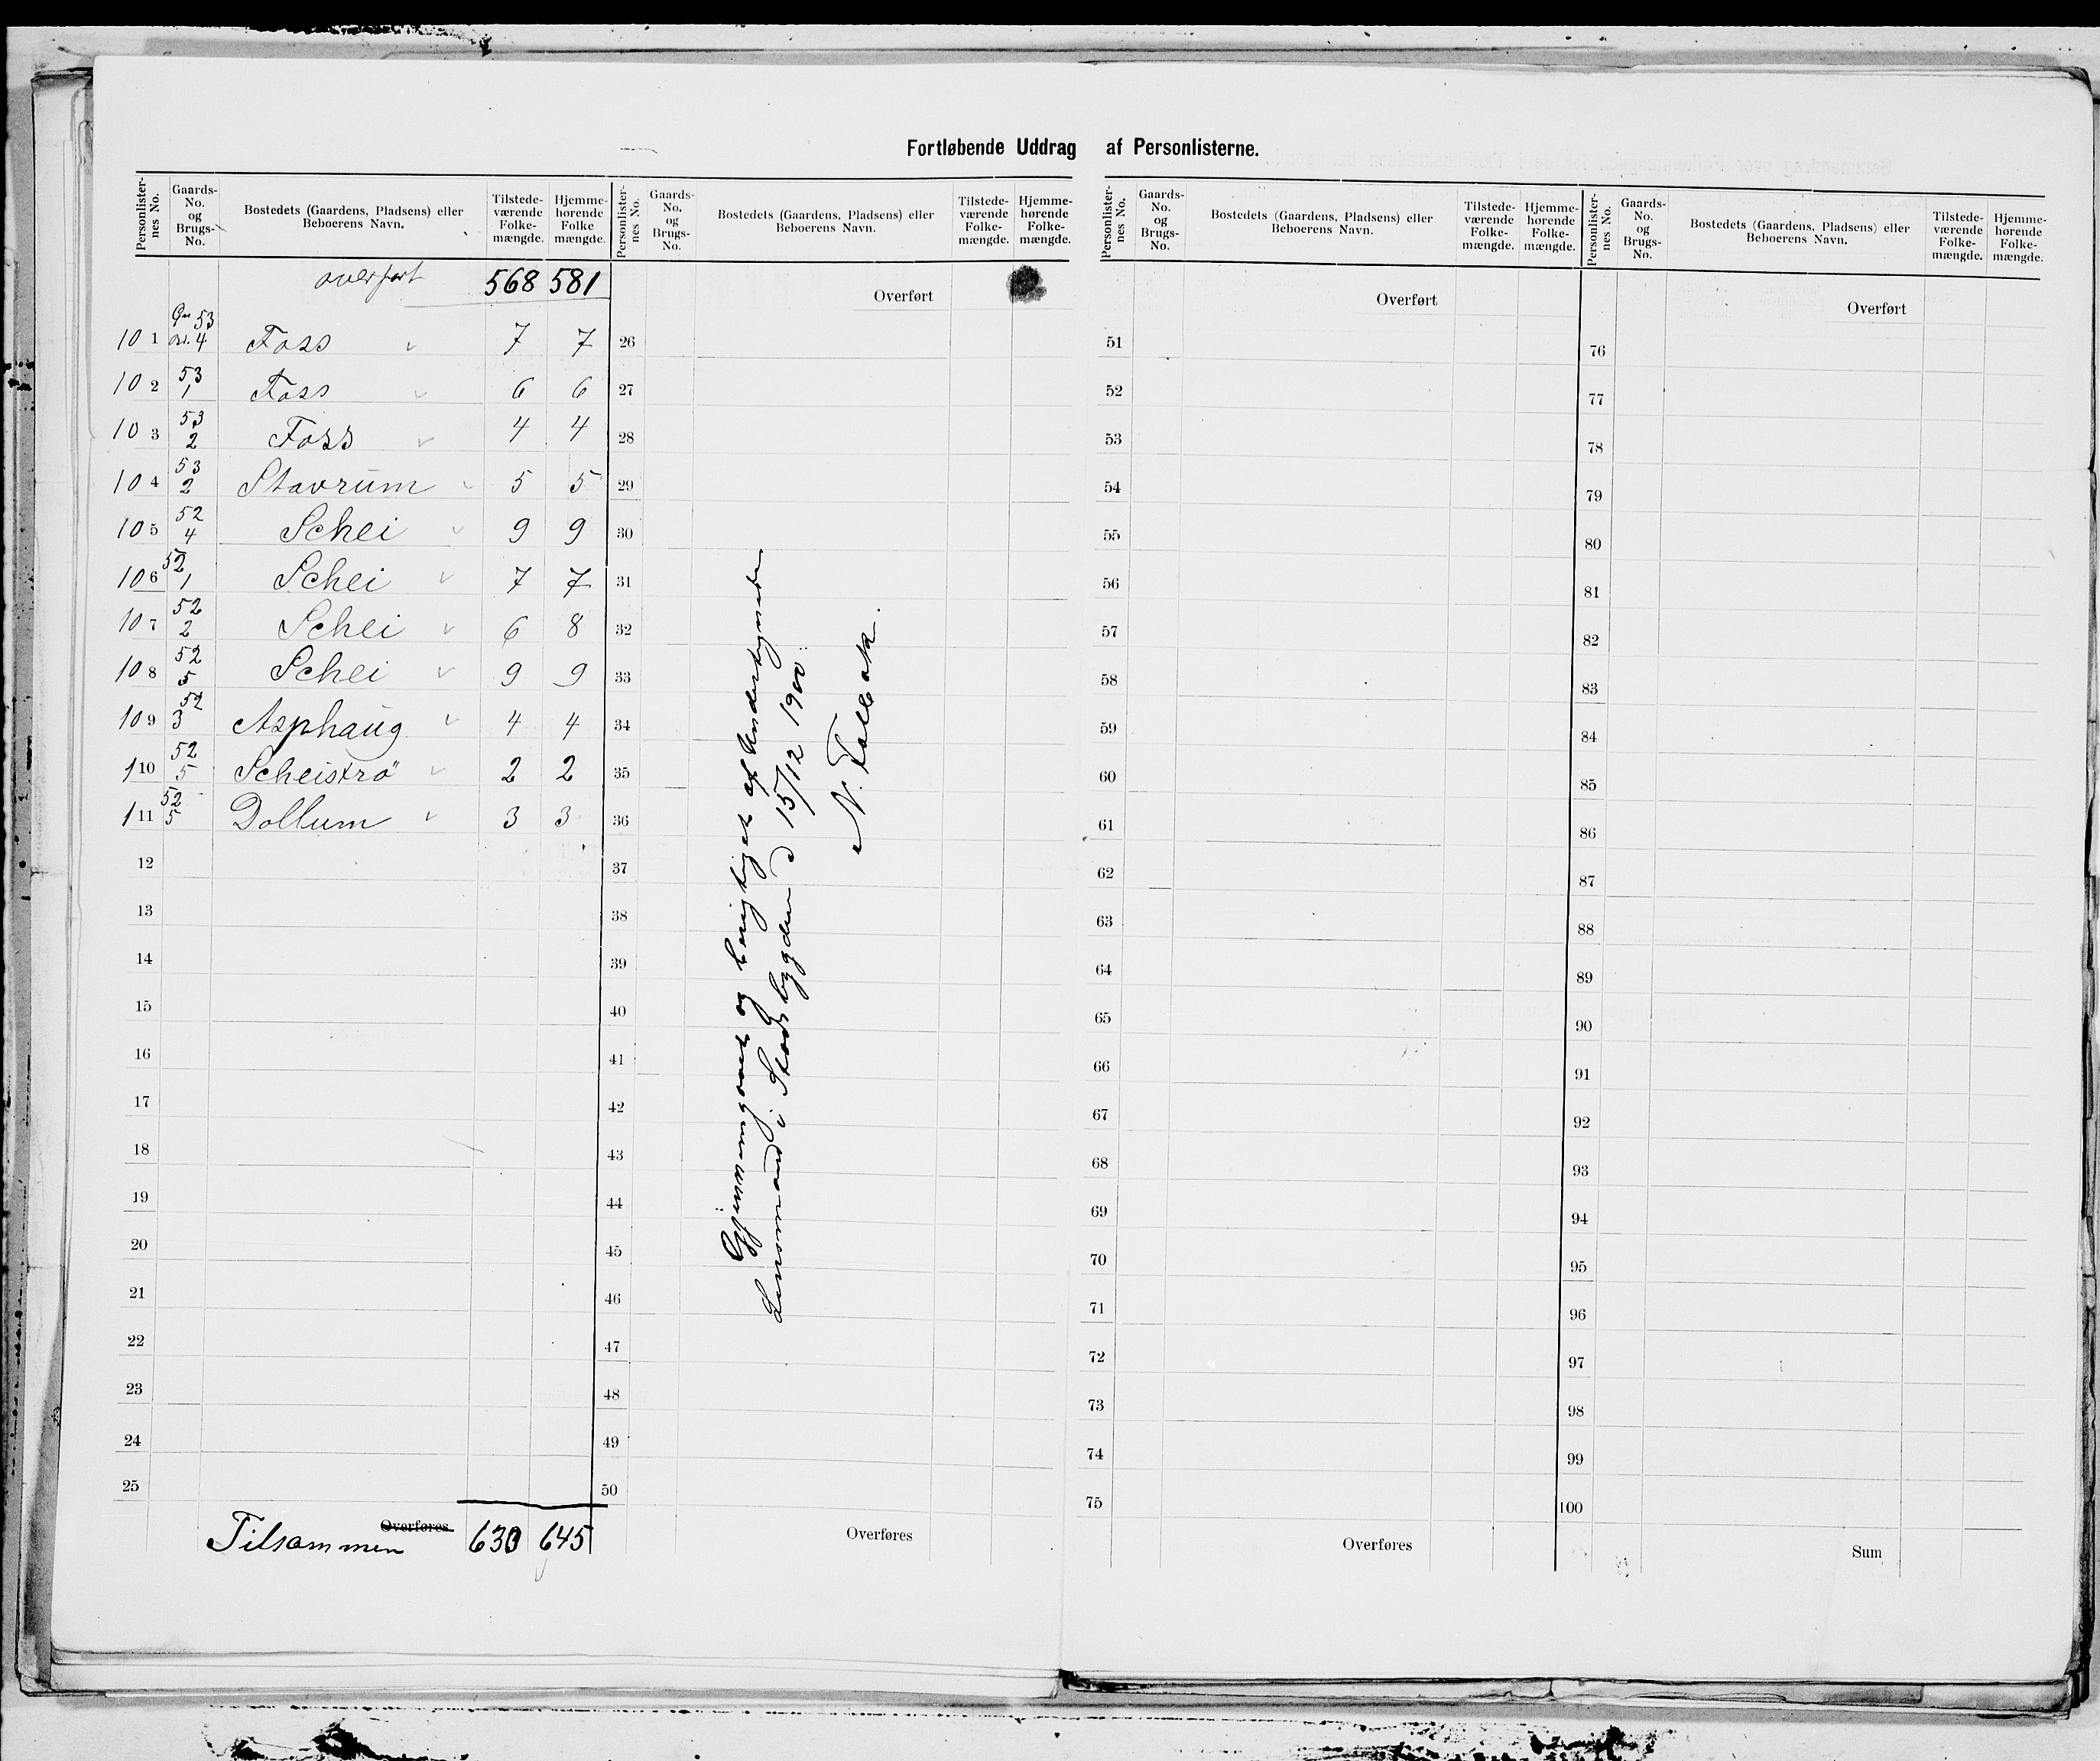 Fortløbende Uddrag af Personlisterne.
Personlister-nes No. | Gaards-No. og Brugs-No. | Bostedets (Gaardens, Pladsens) eller Beboerens Navn. | Tilstede-værende Folke-mængde. | Hjemme-hørende Folke mængde.
overført 568 581
101 Gn 53 4 Foss 7 7
102 53 1 Foss 6 6
103 53 2 Foss 4 4
104 53 2 Stavrum 5 5
105 52 4 Schei 9 9
106 52 1 Schei 7 7
107 52 2 Schei 6 8
108 52 5 Schei 9 9
109 52 3 Asphaug 4 4
110 52 5 Scheistrø 2 2
111 52 5 Dollum 3 3
12
13
14
15
16
17
18
19
20
21
22
23
24
25
Overføres
Tilsammen 630 645
Personlister-nes No. | Gaards-No. og Brugs-No. | Bostedets (Gaardens, Pladsens) eller Beboerens Navn. | Tilstede-værende Folke-mængde. | Hjemme-hørende Folke-mængde.
Overført
26
27
28
29
30
31
32
33
34
35
36
37
38
39
40
41
42
43
44
45
46
47
48
49
50
Overføres
Gjennemgaaet og berigtiget af Undertegnede
Lensmand i Stadsbygden d 15/12 1900
N. Falbak.
Personlister-nes No. | Gaards-No. og Brugs-No. | Bostedets (Gaardens, Pladsens) eller Beboerens Navn. | Tilstede-værende Folke-mængde. | Hjemme-hørende Folke-mængde.
Overført
51
52
53
54
55
56
57
58
59
60
61
62
63
64
65
66
67
68
69
70
71
72
73
74
75
Overføres
Personlister-nes No. | Gaards-No. og Brugs-No. | Bostedets (Gaardens, Pladsens) eller Beboerens Navn. | Tilstede-værende Folke-mængde. | Hjemme-hørende Folke-mængde.
Overført
76
77
78
79
80
81
82
83
84
85
86
87
88
89
90
91
92
93
94
95
96
97
98
99
100
Sum